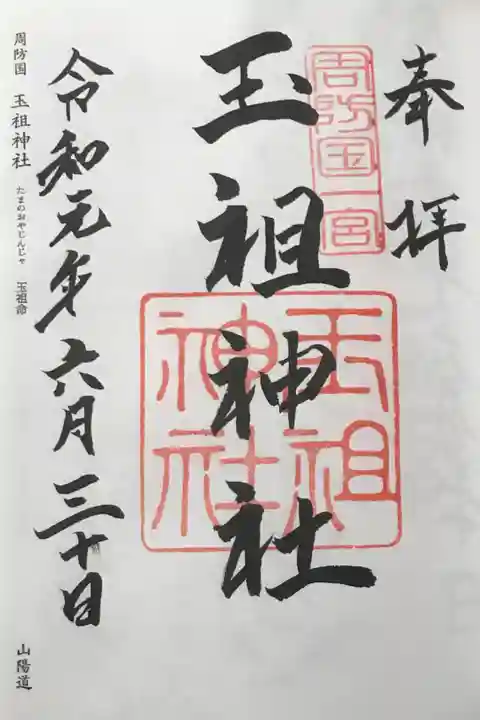 奉拝
周防国一宮
玉祖神社
玉祖
神社
令和元年六月三十日
周防国 玉祖神社 たまのおやじんじゃ 玉祖命
山陽道